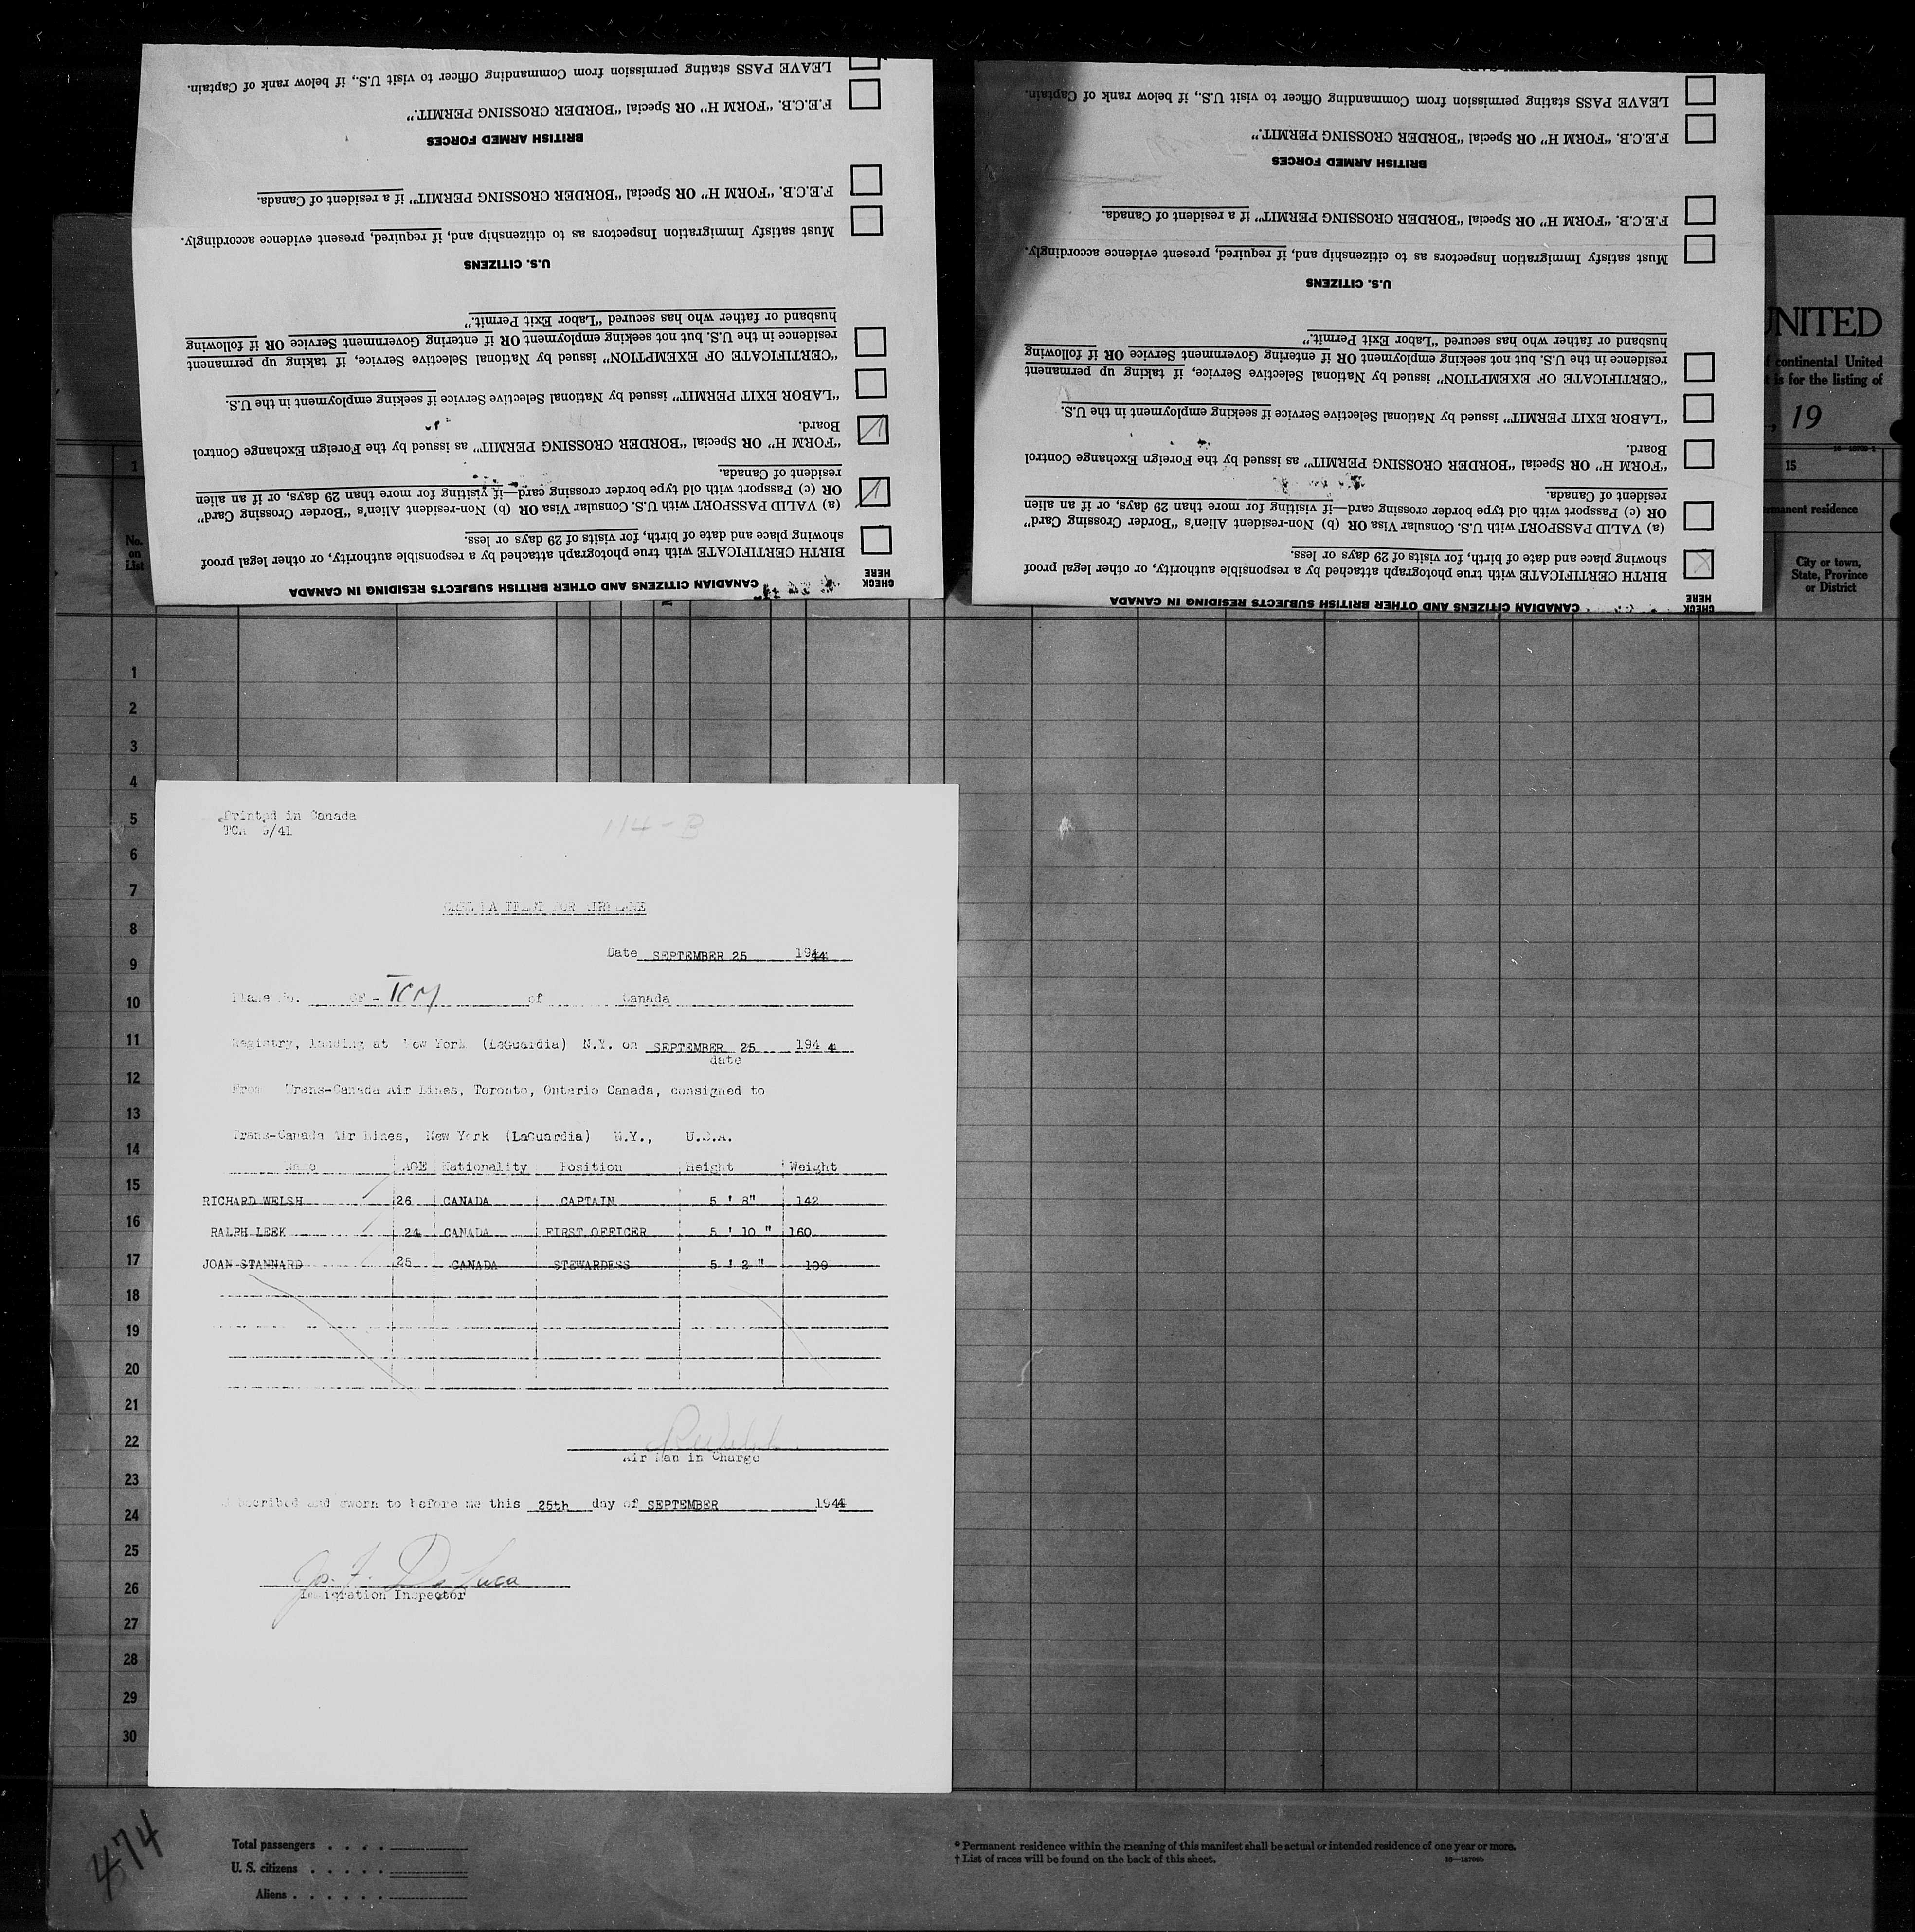 CHECK
HERE
CANADIAN CITIZENS AND OTHER BRITISH SUBJECTS RESIDING IN CANADA
BIRTH CERTIFICATE with true photograph attached by a responsible authority, or other legal proof
showing place and date of birth, for visits of 29 days or less.
(a) VALID PASSPORT with U.S. Consular Visa OR (b) Non-resident Alien's "Border Crossing Card"
OR (c) Passport with old type border crossing card—if visiting for more than 29 days, or if an alien
resident of Canada.
"FORM H" OR Special "BORDER CROSSING PERMIT" as issued by the Foreign Exchange Control
Board.
"LABOR EXIT PERMIT" issued by National Selective Service if seeking employment in the U.S.
"CERTIFICATE OF EXEMPTION" issued by National Selective Service, if taking up permanent
residence in the U.S. but not seeking employment OR if entering Government Service OR if following
husband or father who has secured "Labor Exit Permit."
U.S. CITIZENS
Must satisfy Immigration Inspectors as to citizenship and, if required, present evidence accordingly.
F.E.C.B. "FORM H" OR Special "BORDER CROSSING PERMIT" if a resident of Canada.
BRITISH ARMED FORCES
F.E.C.B. "FORM H" OR Special "BORDER CROSSING PERMIT."
LEAVE PASS stating permission from Commanding Officer to visit U.S., if below rank of Captain.
CHECK
HERE
CANADIAN CITIZENS AND OTHER BRITISH SUBJECTS RESIDING IN CANADA
BIRTH CERTIFICATE with true photograph attached by a responsible authority, or other legal proof
showing place and date of birth, for visits of 29 days or less.
(a) VALID PASSPORT with U.S. Consular Visa OR (b) Non-resident Alien's "Border Crossing Card"
OR (c) Passport with old type border crossing card—if visiting for more than 29 days, or if an alien
resident of Canada.
"FORM H" OR Special "BORDER CROSSING PERMIT" as issued by the Foreign Exchange Control
Board.
"LABOR EXIT PERMIT" issued by National Selective Service if seeking employment in the U.S.
"CERTIFICATE OF EXEMPTION" issued by National Selective Service, if taking up permanent
residence in the U.S. but not seeking employment OR if entering Government Service OR if following
husband or father who has secured "Labor Exit Permit."
U.S. CITIZENS
Must satisfy Immigration Inspectors as to citizenship and, if required, present evidence accordingly.
F.E.C.B. "FORM H" OR Special "BORDER CROSSING PERMIT" if a resident of Canada.
BRITISH ARMED FORCES
F.E.C.B. "FORM H" OR Special "BORDER CROSSING PERMIT."
LEAVE PASS stating permission from Commanding Officer to visit U.S., if below rank of Captain.
UNITED
continental United
is for the listing of
, 19
1
15
permanent residence
No.
on
List
City or town,
State, Province
or District
1
2
3
4
5
6
7
8
9
10
11
12
13
14
15
16
17
18
19
20
21
22
23
24
25
26
27
28
29
30
Printed in Canada
TCA 9/41
114-B
FOR AIRPLANE
Date SEPTEMBER 25 1944
Plane No. CF - TCM of Canada
Registry, landing at New York (LaGuardia) N.Y. on SEPTEMBER 25 1944
date
From Trans-Canada Air Lines, Toronto, Ontario Canada, consigned to
Trans-Canada Air Lines, New York (LaGuardia) N.Y., U.S.A.
Name AGE Nationality Position Height Weight
RICHARD WELSH 26 CANADA CAPTAIN 5 ' 8" 142
RALPH LEEK 24 CANADA FIRST OFFICER 5 ' 10 " 160
JOAN STANNARD 25 CANADA STEWARDESS 5 ' 2 " 109
R Welsh
Air Man in Charge
Subscribed and sworn to before me this 25th day of SEPTEMBER 1944
Jos. F. De Luca
Immigration Inspector
474
Total passengers
U. S. citizens
Aliens
* Permanent residence within the meaning of this manifest shall be actual or intended residence of one year or more.
† List of races will be found on the back of this sheet.